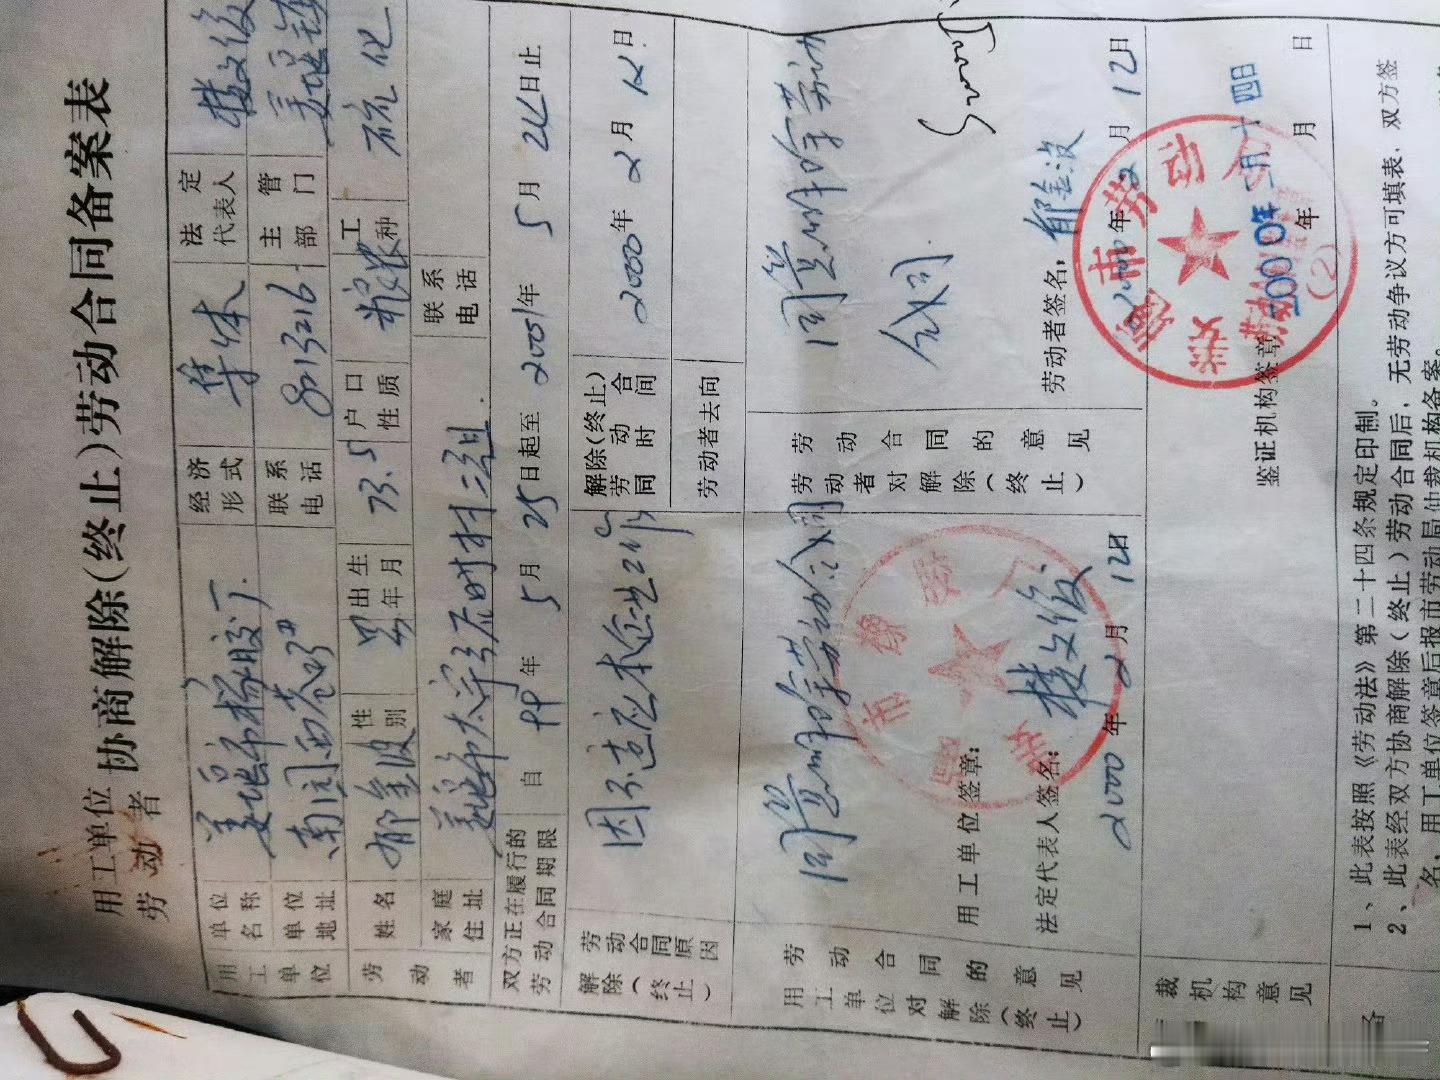 用工单位
劳动者
协商解除(终止)劳动合同备案表
用工单位
单位名称
姜堰市橡胶厂
经济形式
集体
法定代表人
楼文俊
单位地址
南闰西巷
联系电话
8813216
主管部门
姜堰镇
劳动者
姓名
郁金波
性别
男
出生年月
73.5
户口性质
粮农
工种
硫化
家庭住址
姜堰市太宇引屈时村三组
联系电话
双方正在履行的劳动合同期限
自99年5月25日起至2001年5月24日止
解除(终止)劳动合同原因
因不适应本企业工作
解除(终止)劳动合同时间
2000年2月12日
劳动者去向
用工单位对解除(终止)劳动合同的意见
同意解除劳动合同
用工单位签章:
法定代表人签名:楼文俊
2000年2月12日
劳动者对解除(终止)劳动合同的意见
同意解除劳动合同
劳动者签名:郁金波
2000年2月12日
裁机构意见
鉴证机构签章
2000年二月十四日
年 月 日
(2)
备
1、此表按照《劳动法》第二十四条规定印制。
2、此表经双方协商解除(终止)劳动合同后,无劳动争议方可填表,双方签
名,用工单位签章后报市劳动局仲裁机构备案。